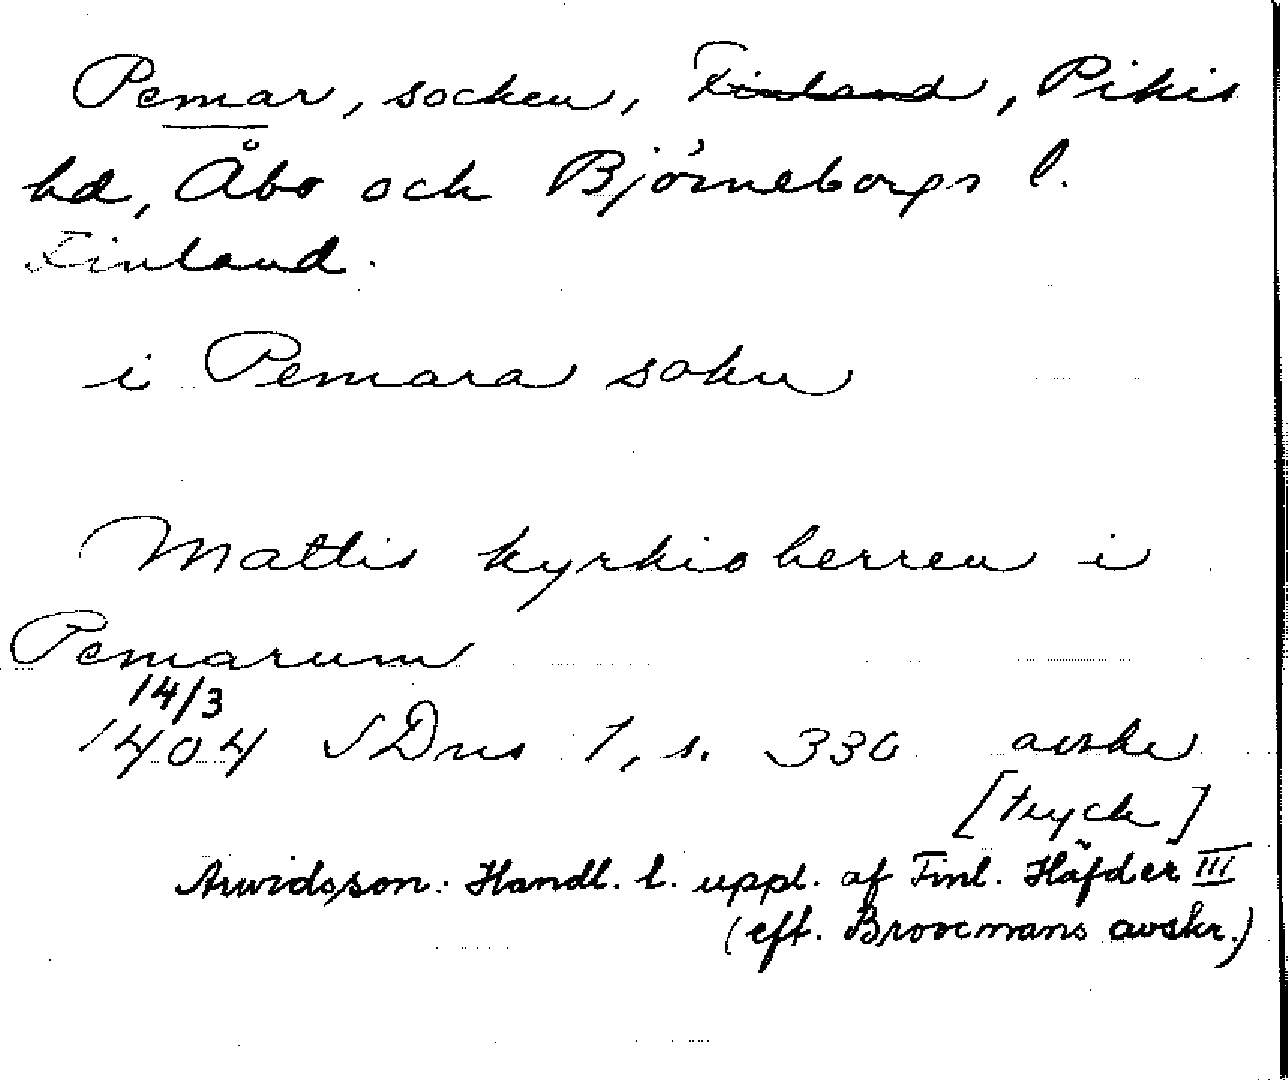 Pemar, socken, Finland, Pikis
hd, Åbo och Björneborgs l.
Finland.
i Pemara sokn
Mattis kyrkioherren i
Pemarum
14/3
1404 SDns 1, s. 330 avskr
[tryck]
Arwidsson: Handl. t. uppl. af Finl. Häfder III
(eft. Broocmans avskr.)